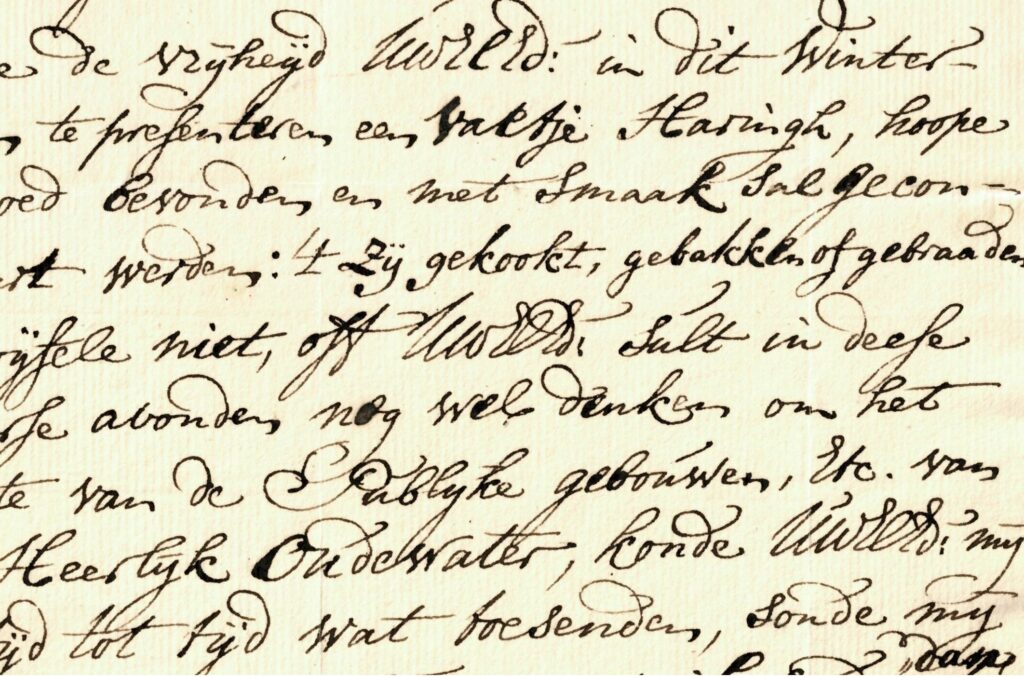 e de vrijheijd UWelEd: in dit Winter-
n te presenteren een vaetje Haringh, hoope
oed bevonden en met smaak sal gecon-
ert werden: 't zij gekookt, gebakken of gebraaden
ijfele niet, off UWelEd: sult in deese
rse avonden nog wel denken om het
te van de Publyke gebouwen, Etc. van
Heerlyk Oudewater, konde UWelEd: mij
ijd tot tijd wat toesenden, sonde mij
dan